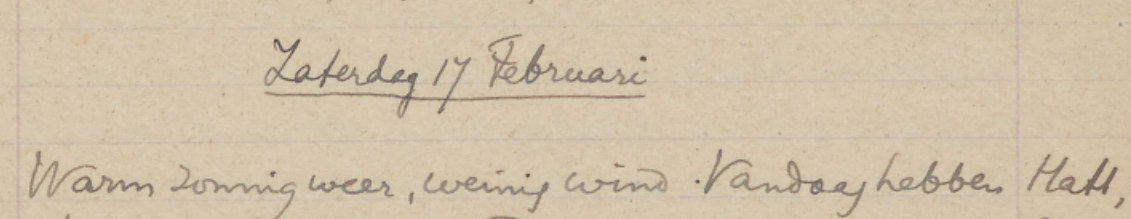 Zaterdag 17 Februari
Warm zonnig weer, weinig wind. Vandaag hebben Hatt,